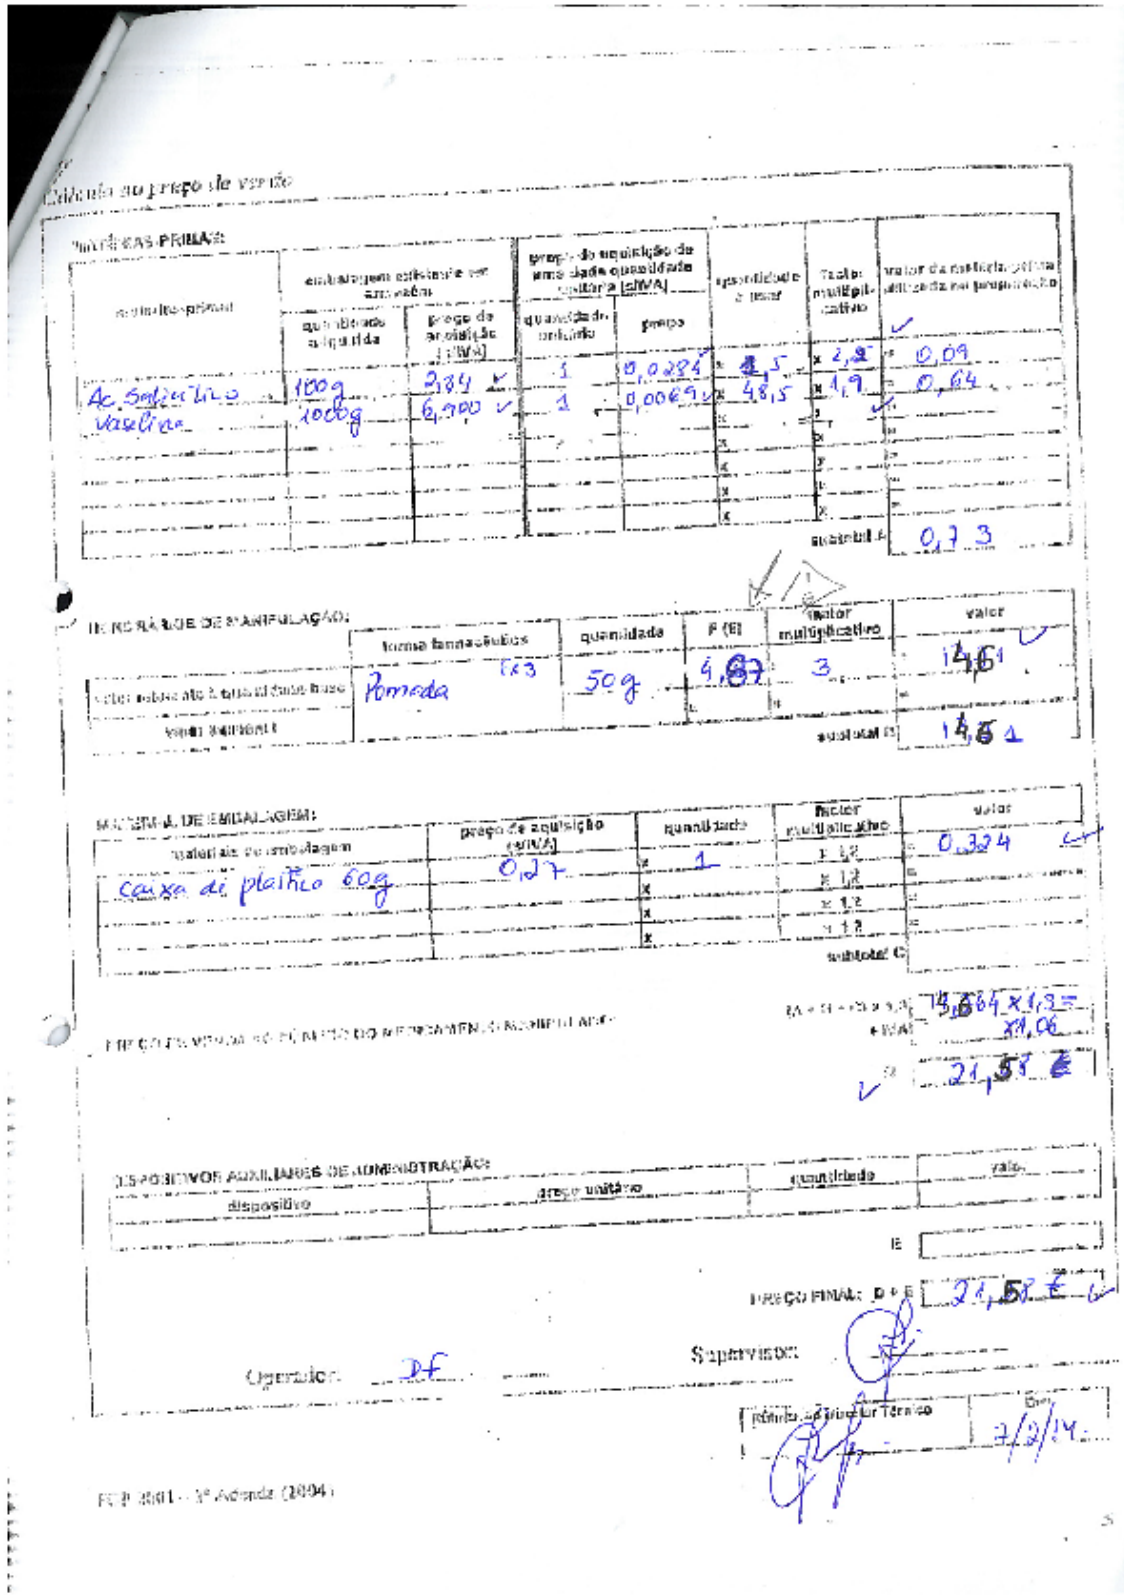 Cálculo do preço de venda
MATÉRIAS-PRIMAS:
matérias-primas
embalagem existente em armazém
preço de aquisição de uma dada quantidade unitária (s/IVA)
quantidade a usar
factor multiplicativo
valor da matéria-prima utilizada na preparação
quantidade adquirida
preço de aquisição (s/IVA)
quantidade unitária
preço
Ac. Salicílico 100g 2,84 1 0,0284 x 1,5 x 2,2 = 0,09
Vaselina 1000g 6,900 1 0,0069 x 48,5 x 1,9 = 0,64
subtotal A 0,73
HONORÁRIOS DE MANIPULAÇÃO:
forma farmacêutica quantidade F (€) factor multiplicativo valor
valor referente à quantidade base Pomada 50g 4,87 3
valor adicional
subtotal B
MATERIAL DE EMBALAGEM:
materiais de embalagem preço de aquisição (s/IVA) quantidade factor multiplicativo valor
caixa de plástico 60g 0,27 x 1 x 1,2 = 0,324
x x 1,2 =
x x 1,2 =
x x 1,2 =
subtotal C
PREÇO DE VENDA AO PÚBLICO DO MEDICAMENTO MANIPULADO:
(A + B + C) x 1,3 x 1,3 =
+ IVA x1,06
D 21,58 €
DISPOSITIVOS AUXILIARES DE ADMINISTRAÇÃO:
dispositivo preço unitário quantidade valor
E
PREÇO FINAL: D + E 21,58 €
Operador: DF Supervisor:
Rubrica do Director Técnico Data
7/2/14
FGP 2001 - 3ª Adenda (2004)